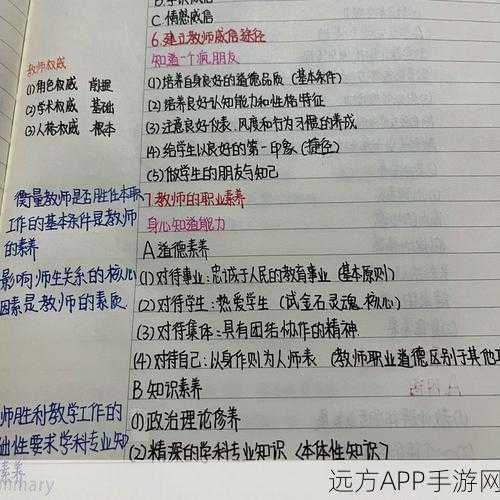 C.情感威信
6.建立教师威信途径
知道一个疯朋友
(1)培养自身良好的道德品质(基本条件)
(2)培养良好认知能力和性格特征
(3)注意良好仪表、风度和行为习惯的养成
(4)给学生以良好的第一印象(捷径)
(5)做学生的朋友与知己
教师权威
(1)角色权威 前提
(2)学术权威 基础
(3)人格权威 根本
7.教师的职业素养
身心知道能力
A.道德素养
(1)对待事业:忠诚于人民的教育事业(基本原则)
(2)对待学生:热爱学生(试金石灵魂.核心)
(3)对待集体:具有团结协作的精神
(4)对待自己:以身作则为人师表(教师职业道德区别于其他
B.知识素养
(1)政治理论修养
(2)精深的学科专业知识<本体性知识>
衡量教师是否胜任本职
工作的基本条件是教师
的素养
影响师生关系的核心
因素是教师的素质.
师胜利教学工作的
础性要求学科专业知
素养
mmary
远方APP手游网